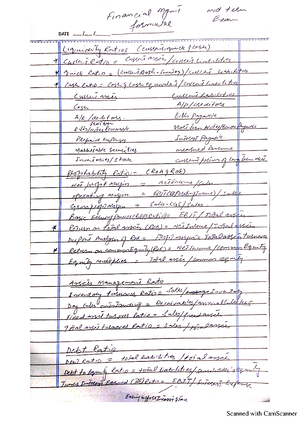 Financial Mgmt mid term
formulas Exam
DATE
Liquidity Ratios (current, quick & cash)
* Current Ratio = Current assets / current liabilities
* Quick Ratio = (Current Assets - Inventory) / current liabilities
* Cash Ratio = Cash & Cash equivalents / current liabilities
Current assets Current liabilities
Cash A/p / creditors
A/R / debtors Bills Payable
Interest Payable
Prepaid expenses
Marketable Securities unearned Revenue
Inventories / stock current portion of long term
Profitability Ratio :- (ROA & ROE)
Net profit margin = net income / sales
operating margin = / Sales
Gross profit margin = Sales - COGS / Sales
Basic Earning power Ratio = EBIT / Total assets
* Return on total assets (ROA) = Net Income / Total assets
* Return on common equity (ROE) = Net income / Common Equity
Equity multiplier = Total assets / common equity
Assets Management Ratio
Inventory turnover Ratio = Sales / Inventory
Day sales outstanding = Receivables / annual sales/365
Fixed asset turnover ratio = Sales / fixed assets
Total asset turnover Ratio = Sales / total assets
Debt Ratio
Debt Ratio = total liabilities / total assets
Debt to equity ratio = total liabilities / equity
Times Interest Earned Ratio = EBIT / Interest Expense
Scanned with CamScanner